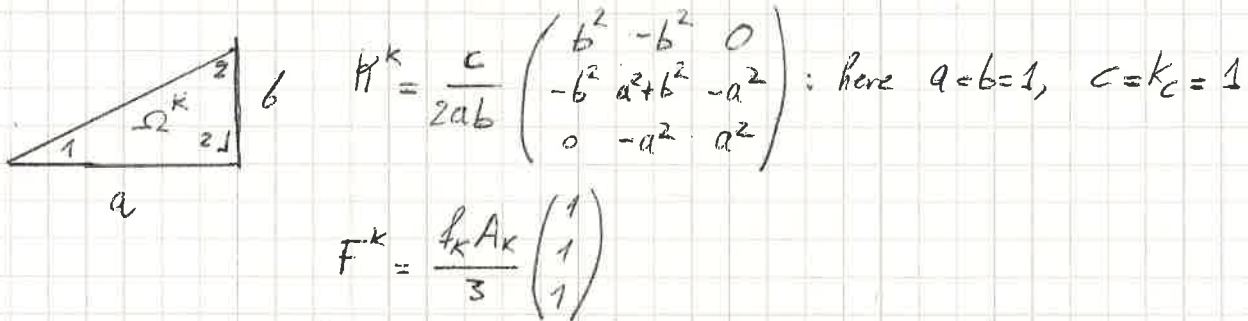 2
b
Ω^K
1
2
a
K^K = c/(2ab) ( b² -b² 0 ; -b² a²+b² -a² ; 0 -a² a² ) : here a=b=1, c=k_c=1
F^K = (f_K A_K)/3 ( 1 ; 1 ; 1 )